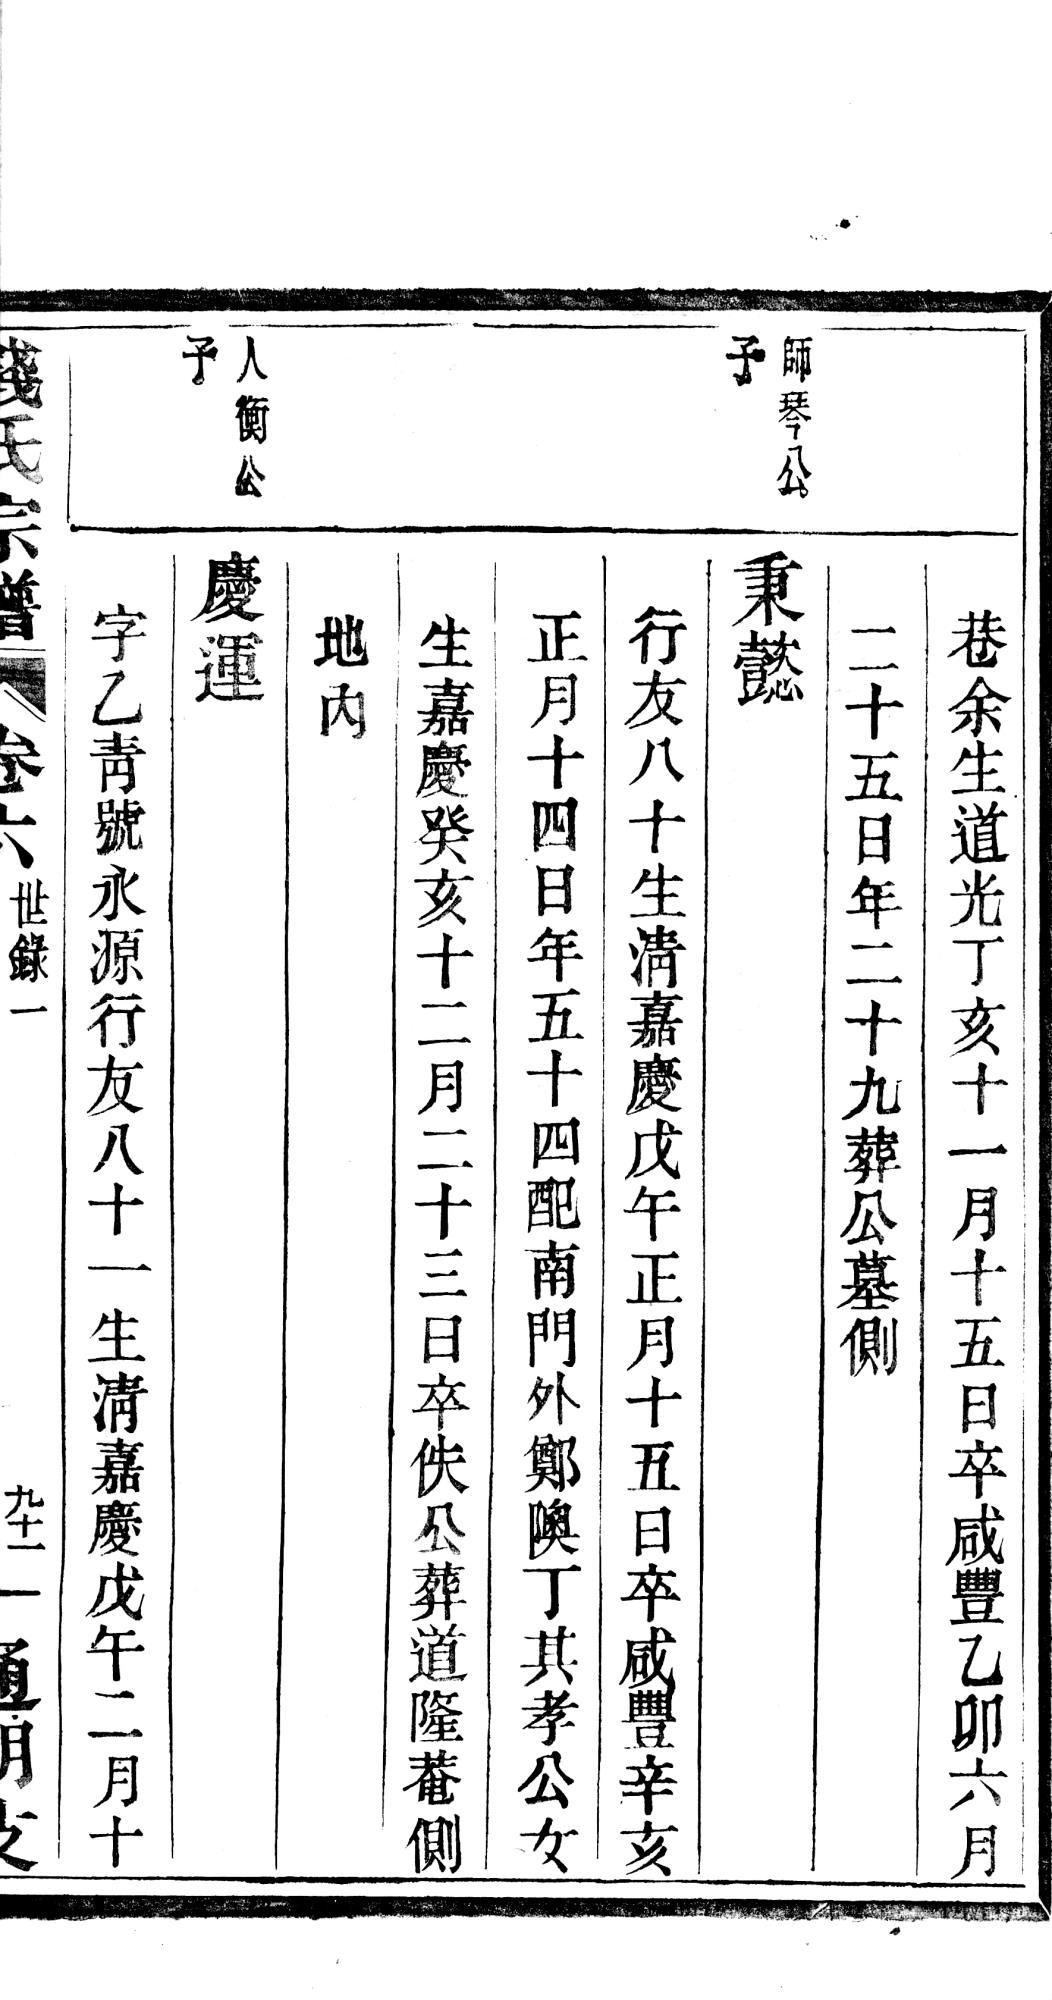 巷余生道光丁亥十一月十五日卒咸豐乙卯六月
二十五日年二十九葬公墓側
師琴公
子
秉懿
行友八十生清嘉慶戊午正月十五日卒咸豐辛亥
正月十四日年五十四配南門外鄭隩丁其孝公女
生嘉慶癸亥十二月二十三日卒佚公葬道隆菴側
地內
人衡公
子
慶運
字乙青號永源行友八十一生清嘉慶戊午二月十
錢氏宗譜
卷六
世錄一
九十一
通明支